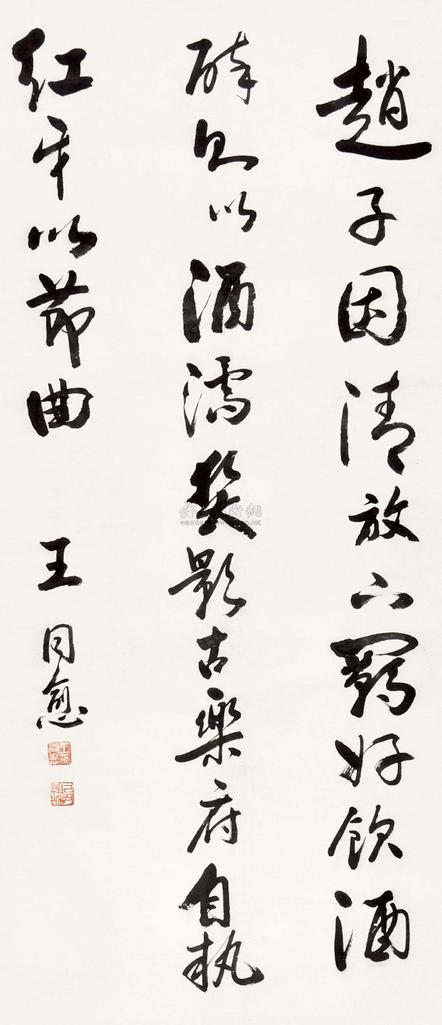 趙子固清放不羈好飲酒
醉則以酒濡髮歌古樂府自執
紅牙以節曲
王同愈